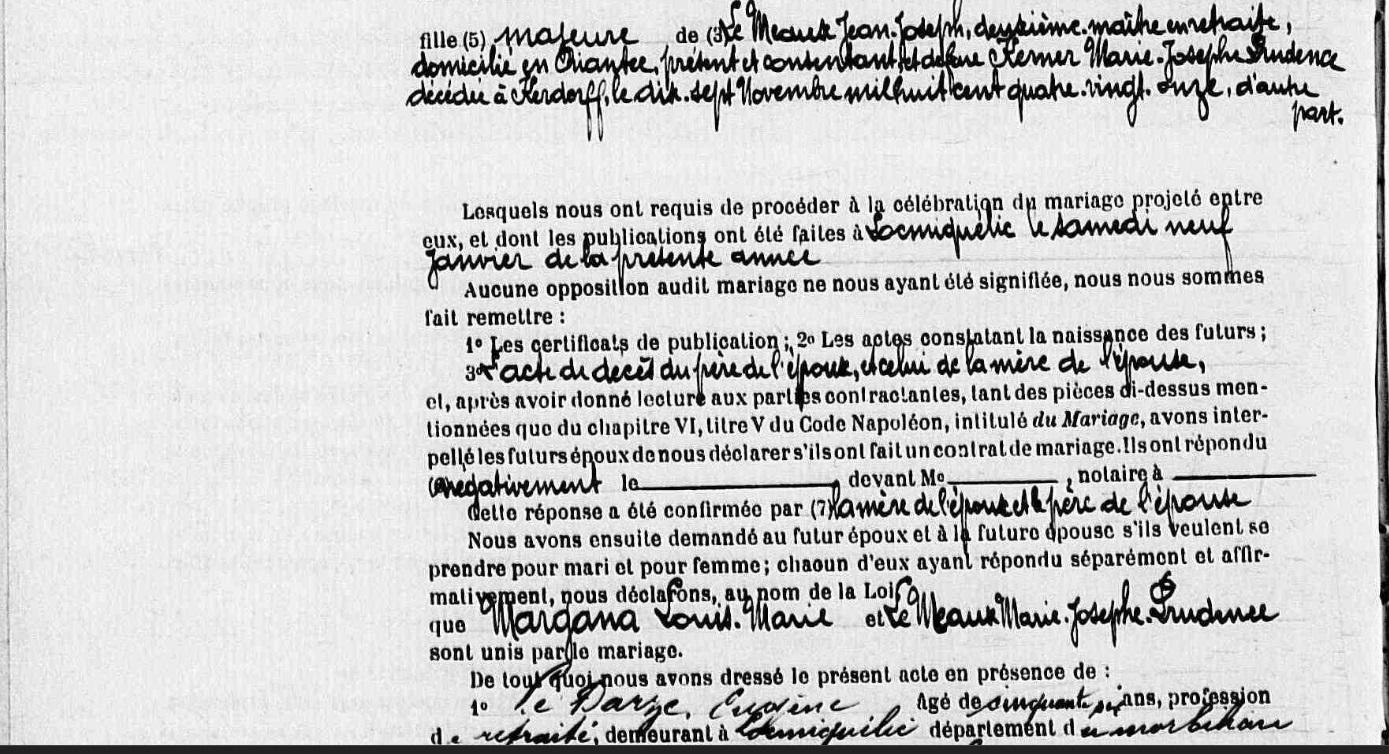 fille (5) majeure de (3) Le Meaux Jean-Joseph, deuxième-maître en retraite,
domicilié en Riantec, présent et consentant, et defue Kerner Marie-Josephe Prudence
décédée à Kerdorff, le dix-sept Novembre mil huit cent quatre-vingt-onze, d'autre
part.
Lesquels nous ont requis de procéder à la célébration du mariage projeté entre
eux, et dont les publications ont été faites à Locmiquélic le samedi neuf
Janvier de la présente année
Aucune opposition audit mariage ne nous ayant été signifiée, nous nous sommes
fait remettre :
1º Les certificats de publication ; 2º Les actes constatant la naissance des futurs ;
3º L'acte de décès du père de l'époux, et celui de la mère de l'épouse,
et, après avoir donné lecture aux parties contractantes, tant des pièces ci-dessus men-
tionnées que du chapitre VI, titre V du Code Napoléon, intitulé du Mariage, avons inter-
pellé les futurs époux de nous déclarer s'ils ont fait un contrat de mariage. Ils ont répondu
négativement le , devant Me , notaire à
Cette réponse a été confirmée par (7) la mère de l'époux et le père de l'épouse
Nous avons ensuite demandé au futur époux et à la future épouse s'ils veulent se
prendre pour mari et pour femme ; chacun d'eux ayant répondu séparément et affir-
mativement, nous déclarons, au nom de la Loi,
que Margana Louis-Marie et Le Meaux Marie-Josephe-Prudence
sont unis par le mariage.
De tout quoi nous avons dressé le présent acte en présence de :
1º Le Darze, Eugène Agé de cinquante six ans, profession
de retraité, demeurant à Locmiquélic département du morbihan